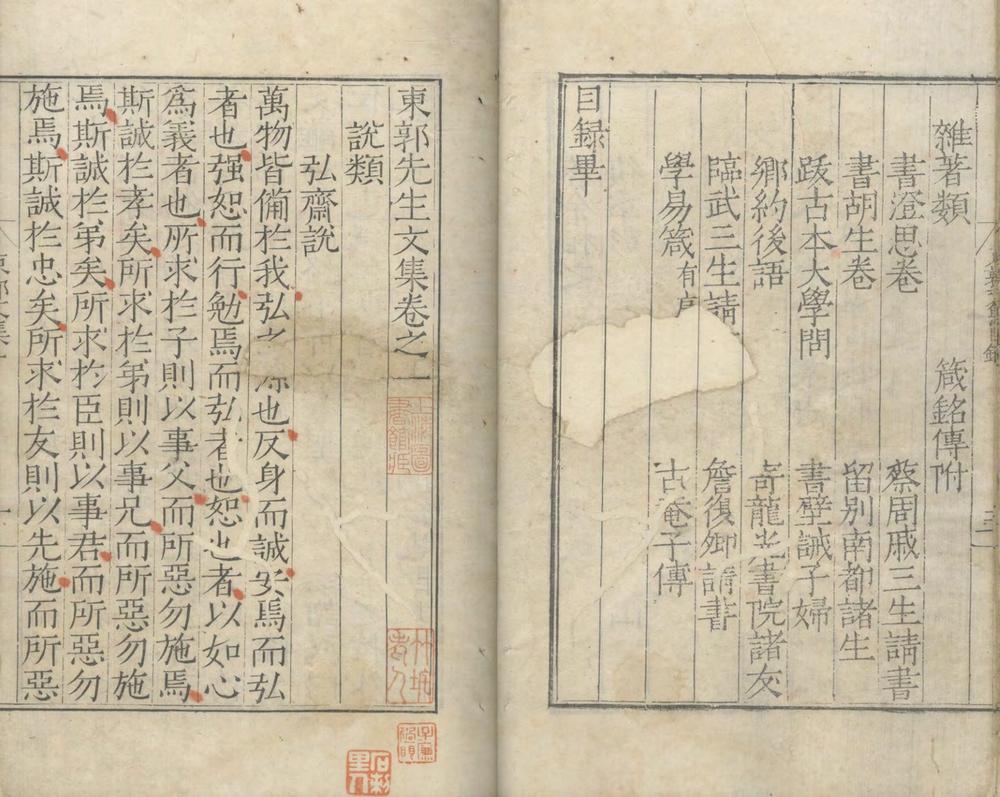 雜著類　　箴銘傳附
書澄思卷　　蔡周戚三生請書
書胡生卷　　留別南都諸生
跋古本大學問　　書壁誡子婦
鄉約後語　　龍光書院諸友
臨武三生請　　詹復卿請書
學易箴有　　古菴子傳
目録畢
東郭先生文集卷之一
說類
弘齋說
萬物皆備於我弘之也反身而誠焉而弘
者也强恕而行勉焉而弘者也恕也者以如心
爲義者也所求於子則以事父而所惡勿施焉
斯誠於孝矣所求於弟則以事兄而所惡勿施
焉斯誠於弟矣所求於臣則以事君而所惡勿
施焉斯誠於忠矣所求於友則以先施而所惡